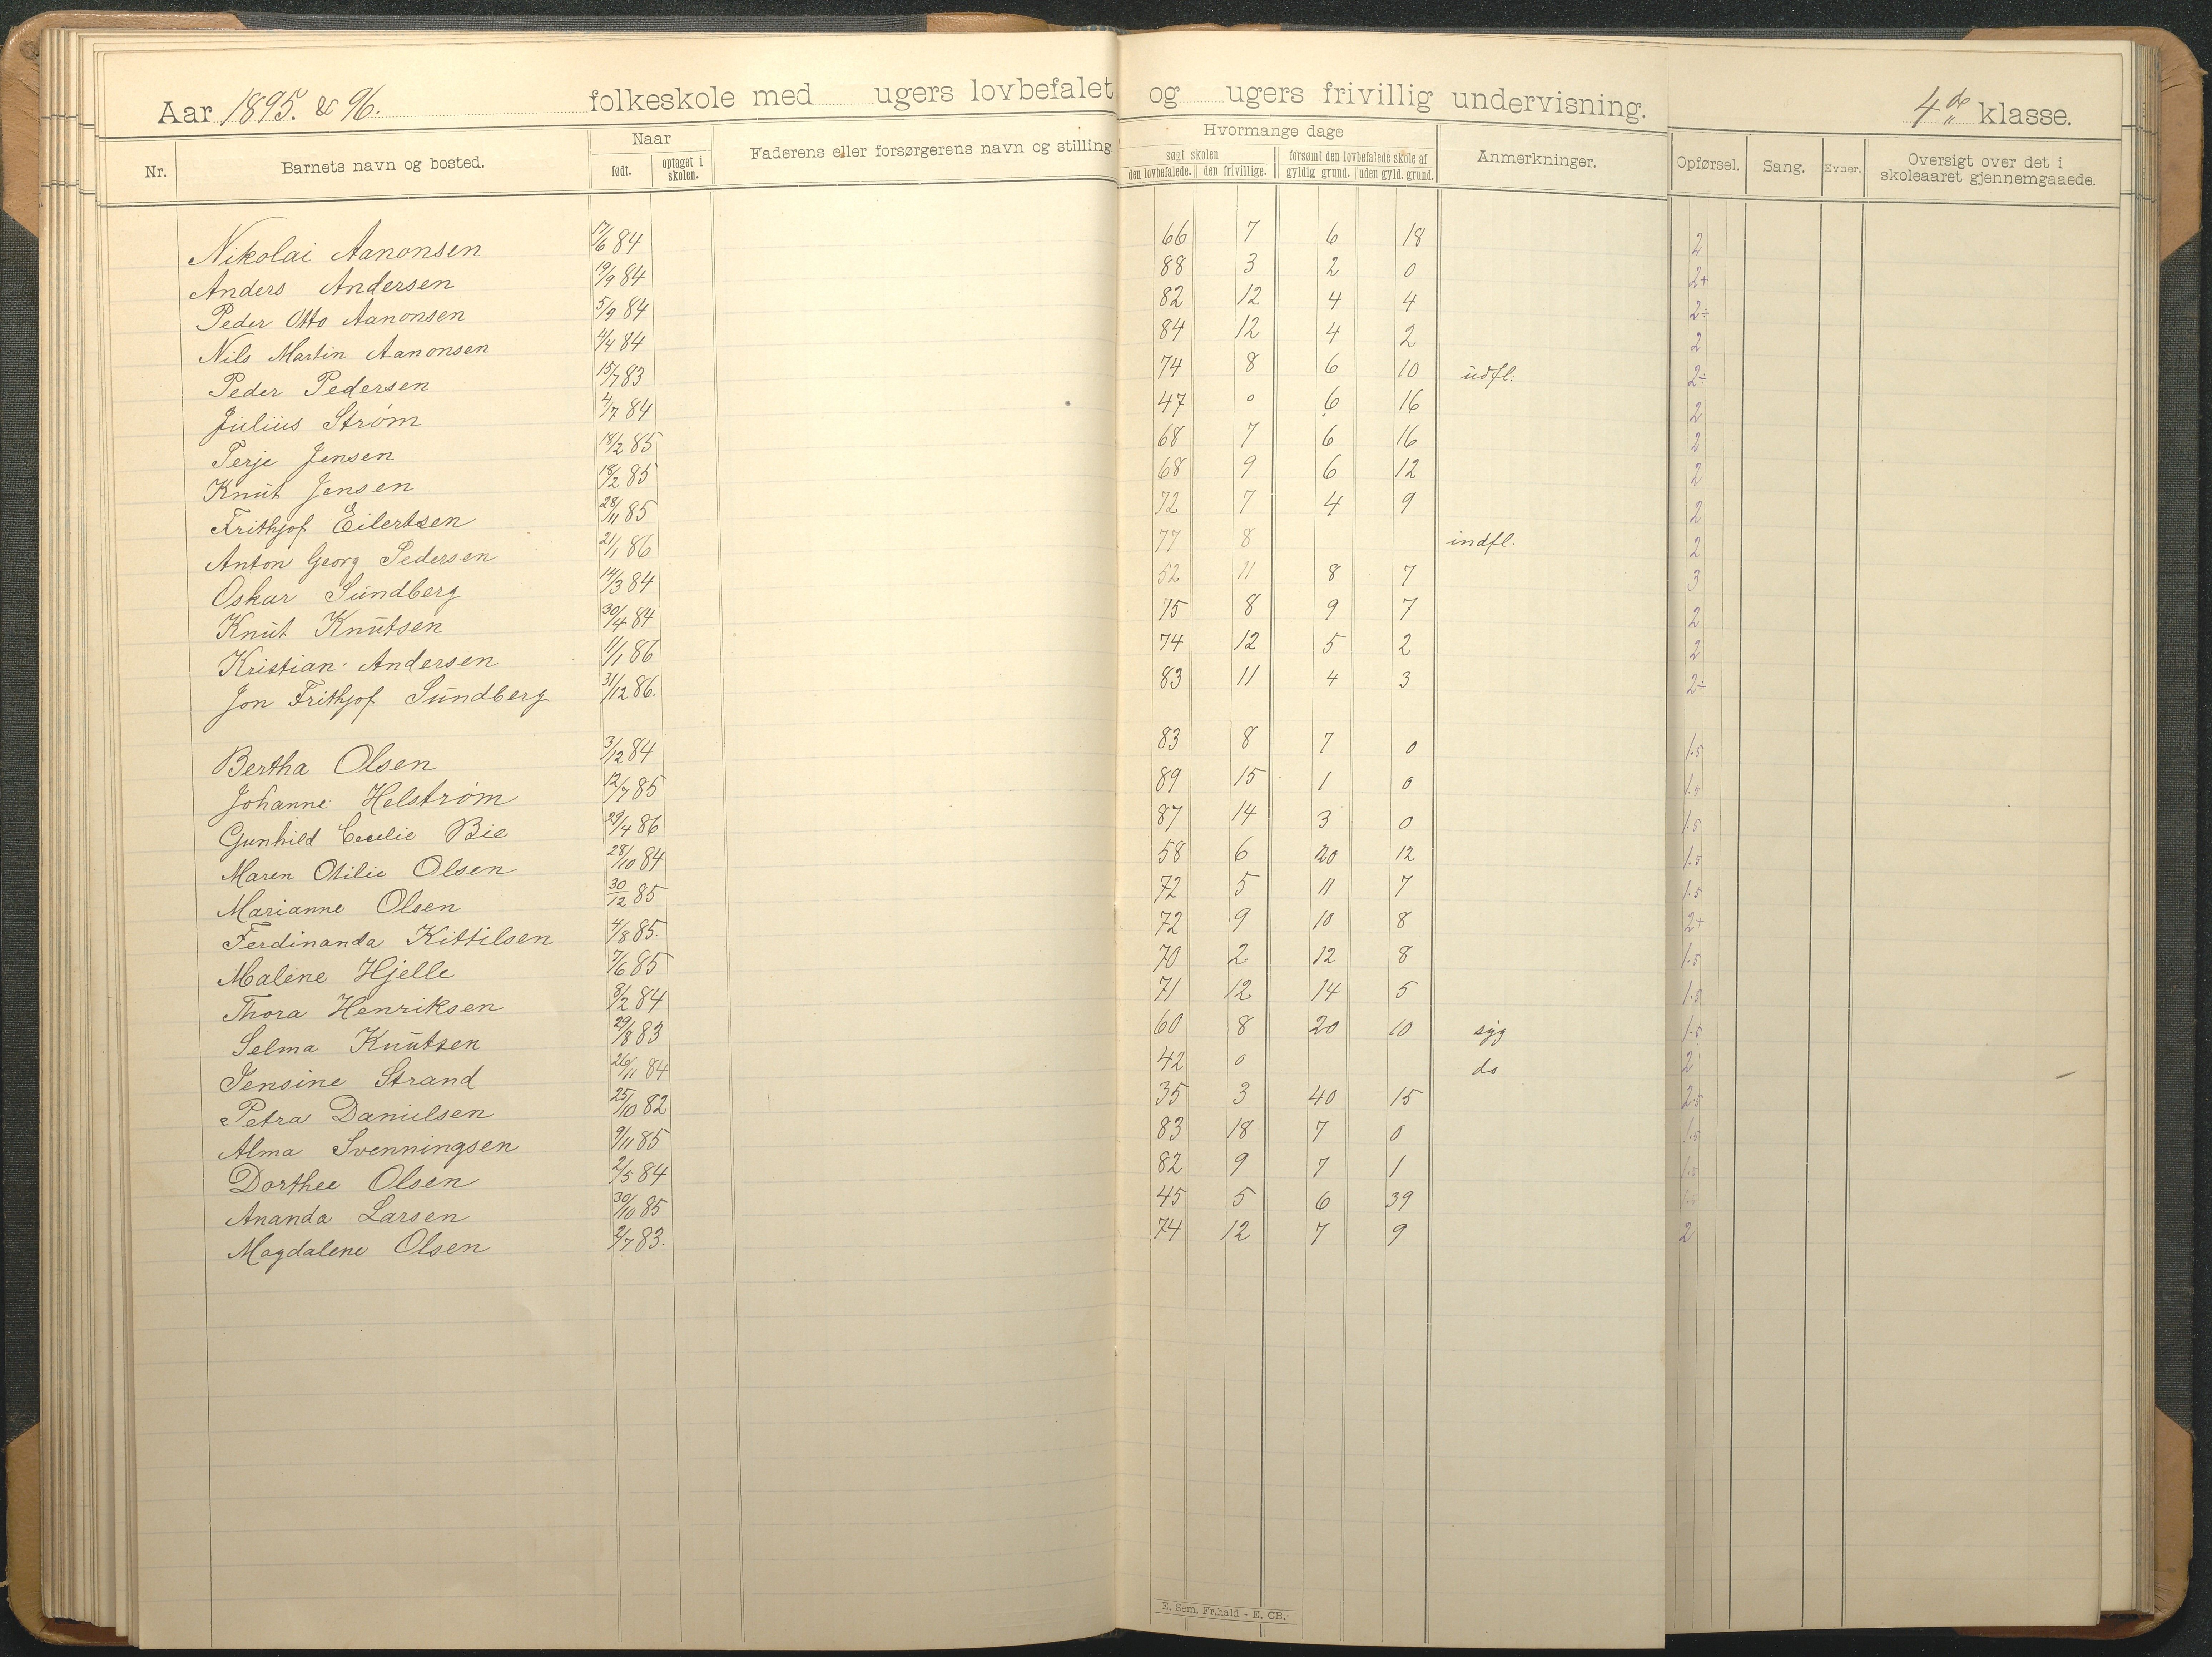 Aar 1895 & 96. folkeskole med ugers lovbefalet og ugers frivillig undervisning. 4de klasse.
Nr. Barnets navn og bosted. Naar født. optaget i skolen. Faderens eller forsørgerens navn og stilling. Hvormange dage søgt skolen den lovbefalede. den frivillige. forsømt den lovbefalede skole af gyldig grund. uden gyld. grund. Anmerkninger. Opførsel. Sang. Evner. Oversigt over det i skoleaaret gjennemgaaede.
Nikolai Aanonsen 17/6 84 66 7 6 18 2
Anders Andersen 19/9 84 88 3 2 0 2+
Peder Otto Aanonsen 5/9 84 82 12 4 4 2÷
Nils Martin Aanonsen 4/4 84 84 12 4 2 2
Peder Pedersen 15/7 83 74 8 6 10 udfl: 2÷
Julius Strøm 4/7 84 47 0 6 16 2
Terje Jensen 18/2 85 68 7 6 16 2
Knut Jensen 18/2 85 68 9 6 12 2
Frithjof Eilertsen 28/11 85 72 7 4 9 2
Anton Georg Pedersen 21/1 86 77 8 indfl. 2
Oskar Sundberg 14/3 84 52 11 8 7 3
Knut Knutsen 30/4 84 75 8 9 7 2
Kristian Andersen 11/1 86 74 12 5 2 2
Jon Frithjof Sundberg 31/12 86. 83 11 4 3 2÷
Bertha Olsen 3/12 84 83 8 7 0 1.5
Johanne Helstrøm 12/7 85 89 15 1 0 1.5
Gunhild Cecilie Bie 29/4 86 87 14 3 0 1.5
Maren Otilie Olsen 28/10 84 58 6 20 12 1.5
Marianne Olsen 30/12 85 72 5 11 7 1.5
Ferdinanda Kittilsen 4/8 85. 72 9 10 8 2+
Malene Hjelle 7/6 85 70 2 12 8 1.5
Thora Henriksen 8/2 84 71 12 14 5 1.5
Selma Knutsen 29/8 83 60 8 20 10 syg 1.5
Jensine Strand 26/11 84 42 0 do 2
Petra Danielsen 25/10 82 35 3 40 15 2.5
Alma Svenningsen 9/11 85 83 18 7 0 1.5
Dorthee Olsen 2/5 84 82 9 7 1 1.5
Ananda Larsen 30/10 85 45 5 6 39 1.5
Magdalene Olsen 2/7 83. 74 12 7 9 2
E. Sem, Fr.hald - E. CB.